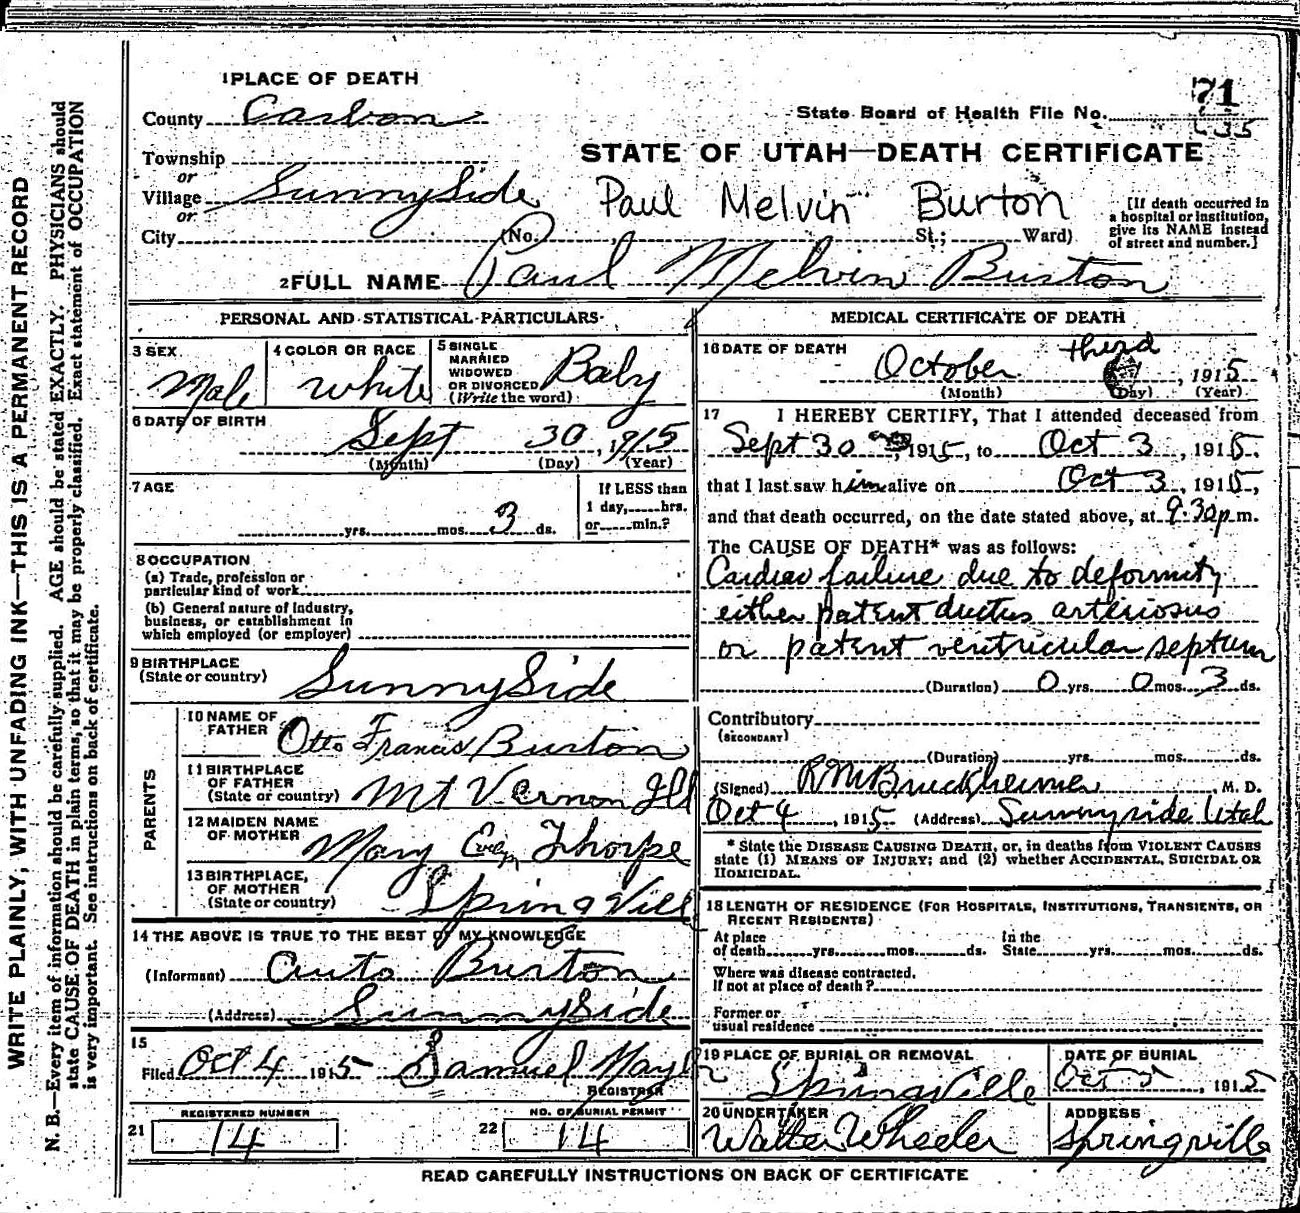 WRITE PLAINLY, WITH UNFADING INK—THIS IS A PERMANENT RECORD
N. B.—Every item of information should be carefully supplied. AGE should be stated EXACTLY. PHYSICIANS should
state CAUSE OF DEATH in plain terms, so that it may be properly classified. Exact statement of OCCUPATION
is very important. See instructions on back of certificate.
1 PLACE OF DEATH
County Carbon
Township
or
Village SunnySide
or
City (No. St.; Ward)
71
State Board of Health File No.
35
STATE OF UTAH—DEATH CERTIFICATE
Paul Melvin Burton
[If death occurred in
a hospital or institution,
give its NAME instead
of street and number.]
2 FULL NAME Paul Melvin Burton
PERSONAL AND STATISTICAL PARTICULARS
3 SEX
Male
4 COLOR OR RACE
white
5 SINGLE
MARRIED
WIDOWED
OR DIVORCED
(Write the word)
Baby
6 DATE OF BIRTH
Sept 30, 1915
(Month) (Day) (Year)
7 AGE
yrs. mos. 3 ds.
If LESS than
1 day, hrs.
or min.?
8 OCCUPATION
(a) Trade, profession or
particular kind of work
(b) General nature of industry,
business, or establishment in
which employed (or employer)
9 BIRTHPLACE
(State or country)
SunnySide
PARENTS
10 NAME OF
FATHER
Otto Francis Burton
11 BIRTHPLACE
OF FATHER
(State or country)
Mt Vernon Ill
12 MAIDEN NAME
OF MOTHER
Mary Thorpe
13 BIRTHPLACE,
OF MOTHER
(State or country)
SpringVill
14 THE ABOVE IS TRUE TO THE BEST OF MY KNOWLEDGE
(Informant) Auto Burton
(Address) SunnySide
15
Filed Oct 4 1915 Samuel
REGISTRAR
REGISTERED NUMBER
21 14
NO. OF BURIAL PERMIT
22 14
MEDICAL CERTIFICATE OF DEATH
16 DATE OF DEATH
October third, 1915
(Month) (Day) (Year)
17 I HEREBY CERTIFY, That I attended deceased from
Sept 30, 1915, to Oct 3, 1915.
that I last saw him alive on Oct 3, 1915,
and that death occurred, on the date stated above, at 9.30 p.m.
The CAUSE OF DEATH* was as follows:
Cardiac failure due to deformity
either patent ductus arteriosus
or patent ventricular septum
(Duration) 0 yrs. 0 mos. 3 ds.
Contributory
(SECONDARY)
(Duration) yrs. mos. ds.
(Signed) , M. D.
Oct 4, 1915 (Address) Sunnyside Utah
* State the DISEASE CAUSING DEATH, or, in deaths from VIOLENT CAUSES
state (1) MEANS OF INJURY; and (2) whether ACCIDENTAL, SUICIDAL OR
HOMICIDAL.
18 LENGTH OF RESIDENCE (FOR HOSPITALS, INSTITUTIONS, TRANSIENTS, OR
RECENT RESIDENTS)
At place
of death yrs. mos. ds.
In the
State yrs. mos. ds.
Where was disease contracted.
If not at place of death?
Former or
usual residence
19 PLACE OF BURIAL OR REMOVAL
Springville
DATE OF BURIAL
Oct 5, 1915
20 UNDERTAKER
Walter Wheeler
ADDRESS
Springville
READ CAREFULLY INSTRUCTIONS ON BACK OF CERTIFICATE